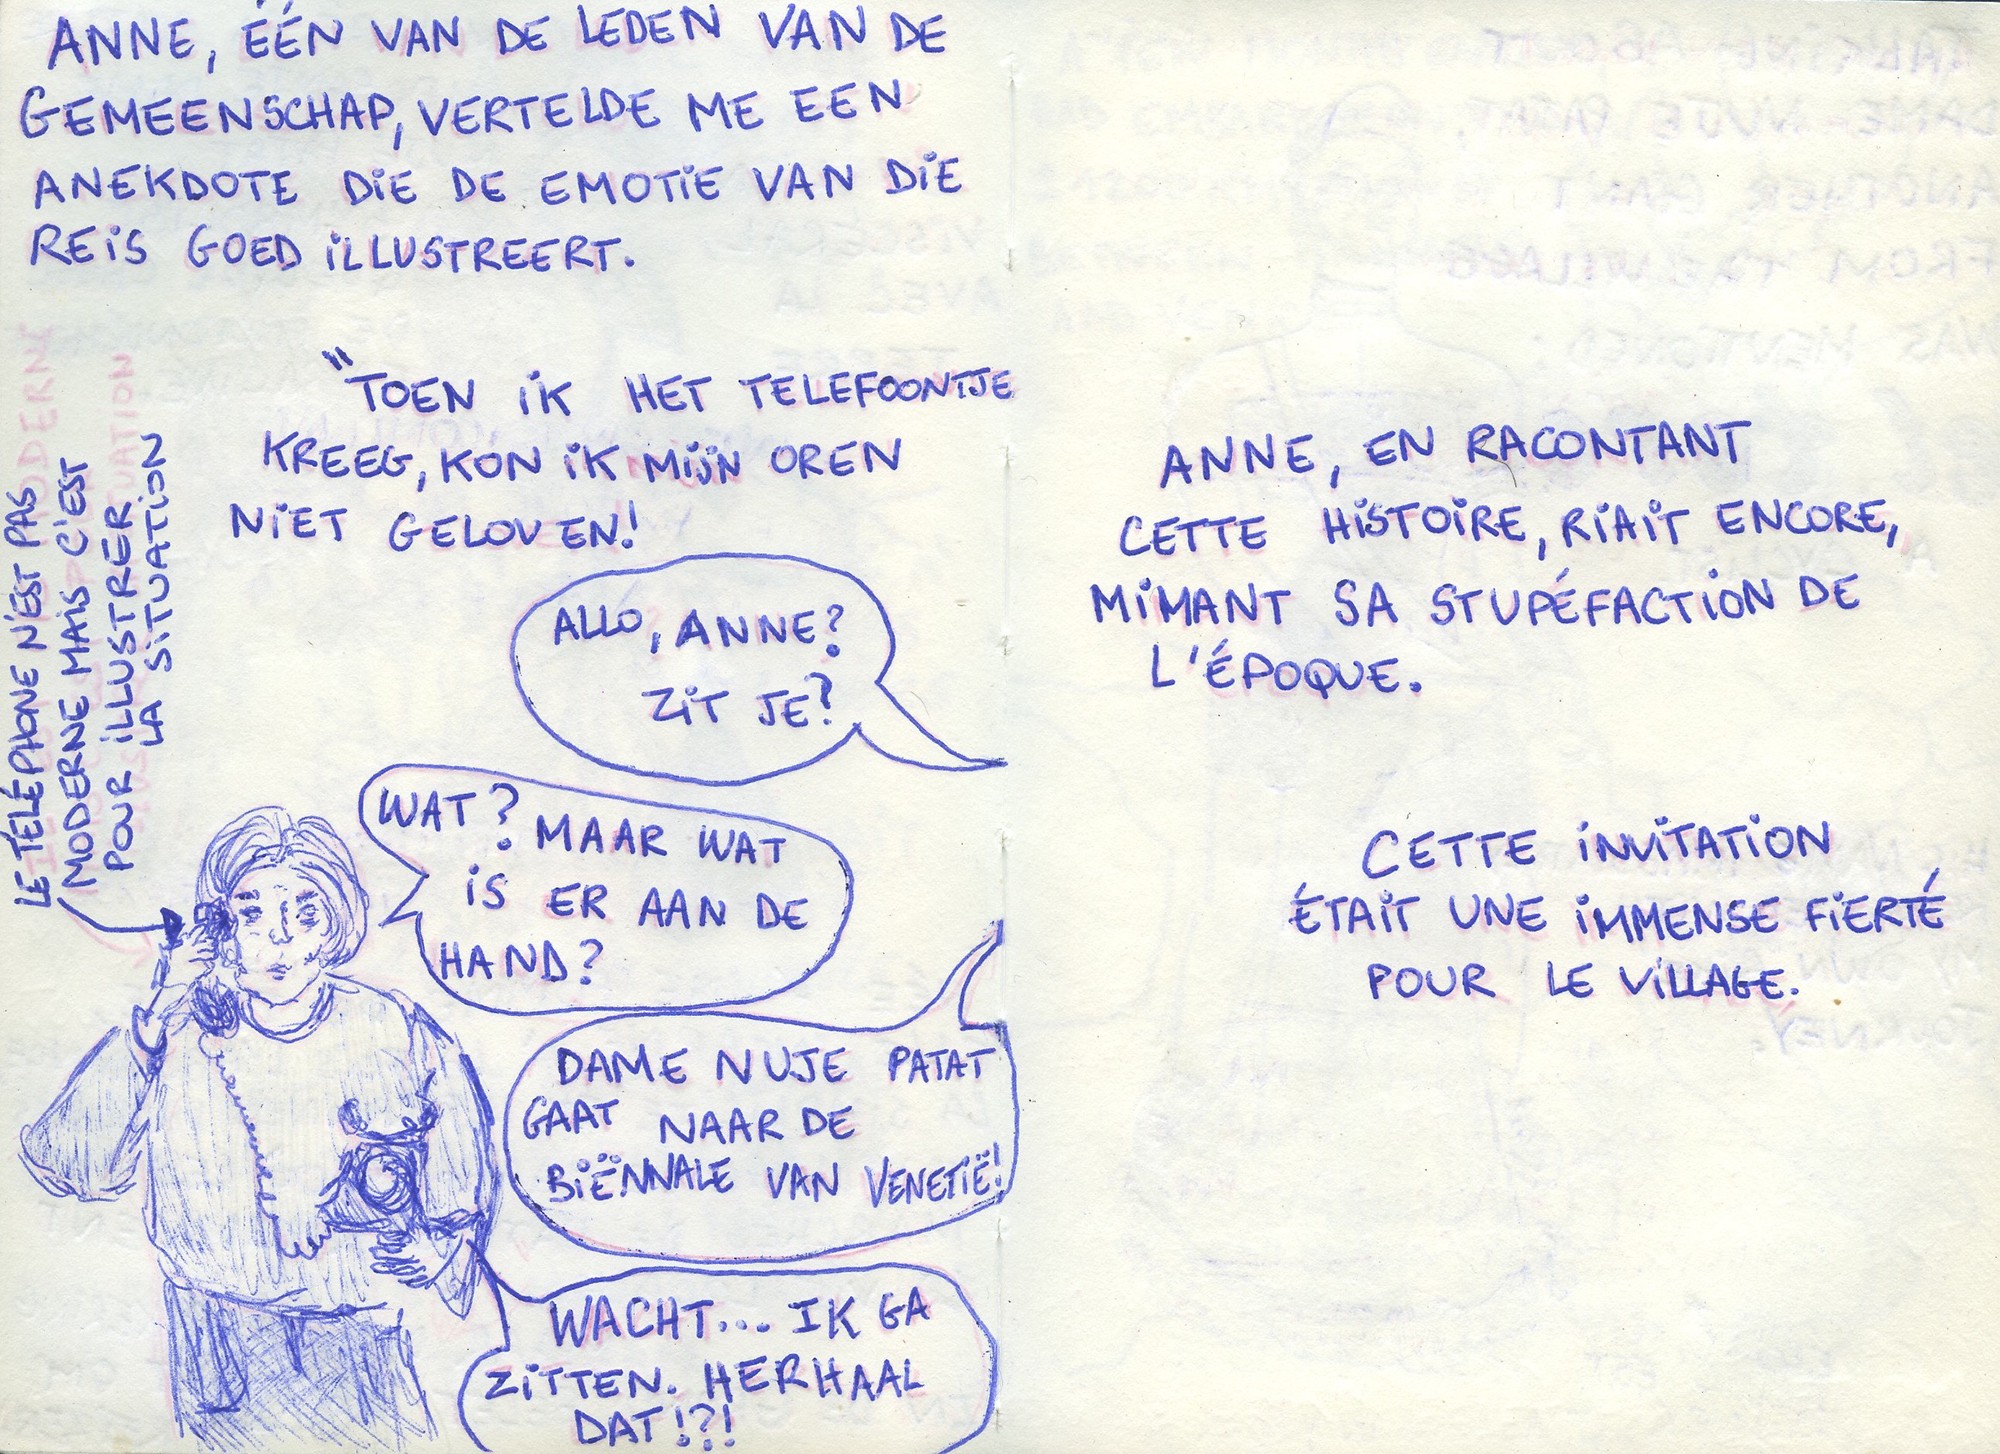 ANNE, ÉÉN VAN DE LEDEN VAN DE
GEMEENSCHAP, VERTELDE ME EEN
ANEKDOTE DIE DE EMOTIE VAN DIE
REIS GOED ILLUSTREERT.
"TOEN IK HET TELEFOONTJE
KREEG, KON IK MIJN OREN
NIET GELOVEN!
LE TÉLÉPHONE N'EST PAS
MODERNE MAIS C'EST
POUR ILLUSTRER
LA SITUATION
ALLO, ANNE?
ZIT JE?
WAT? MAAR WAT
IS ER AAN DE
HAND?
DAME NUJE PATAT
GAAT NAAR DE
BIËNNALE VAN VENETIË!
WACHT... IK GA
ZITTEN. HERHAAL
DAT!?!
ANNE, EN RACONTANT
CETTE HISTOIRE, RIAIT ENCORE,
MIMANT SA STUPÉFACTION DE
L'ÉPOQUE.
CETTE INVITATION
ÉTAIT UNE IMMENSE FIERTÉ
POUR LE VILLAGE.